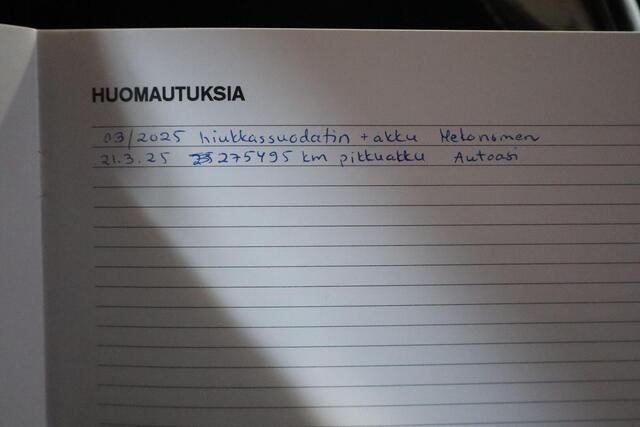 HUOMAUTUKSIA
03/2025 hiukkassuodatin + akku Mekonomen
21.3.25 275495 km pikkuakku Autoasi